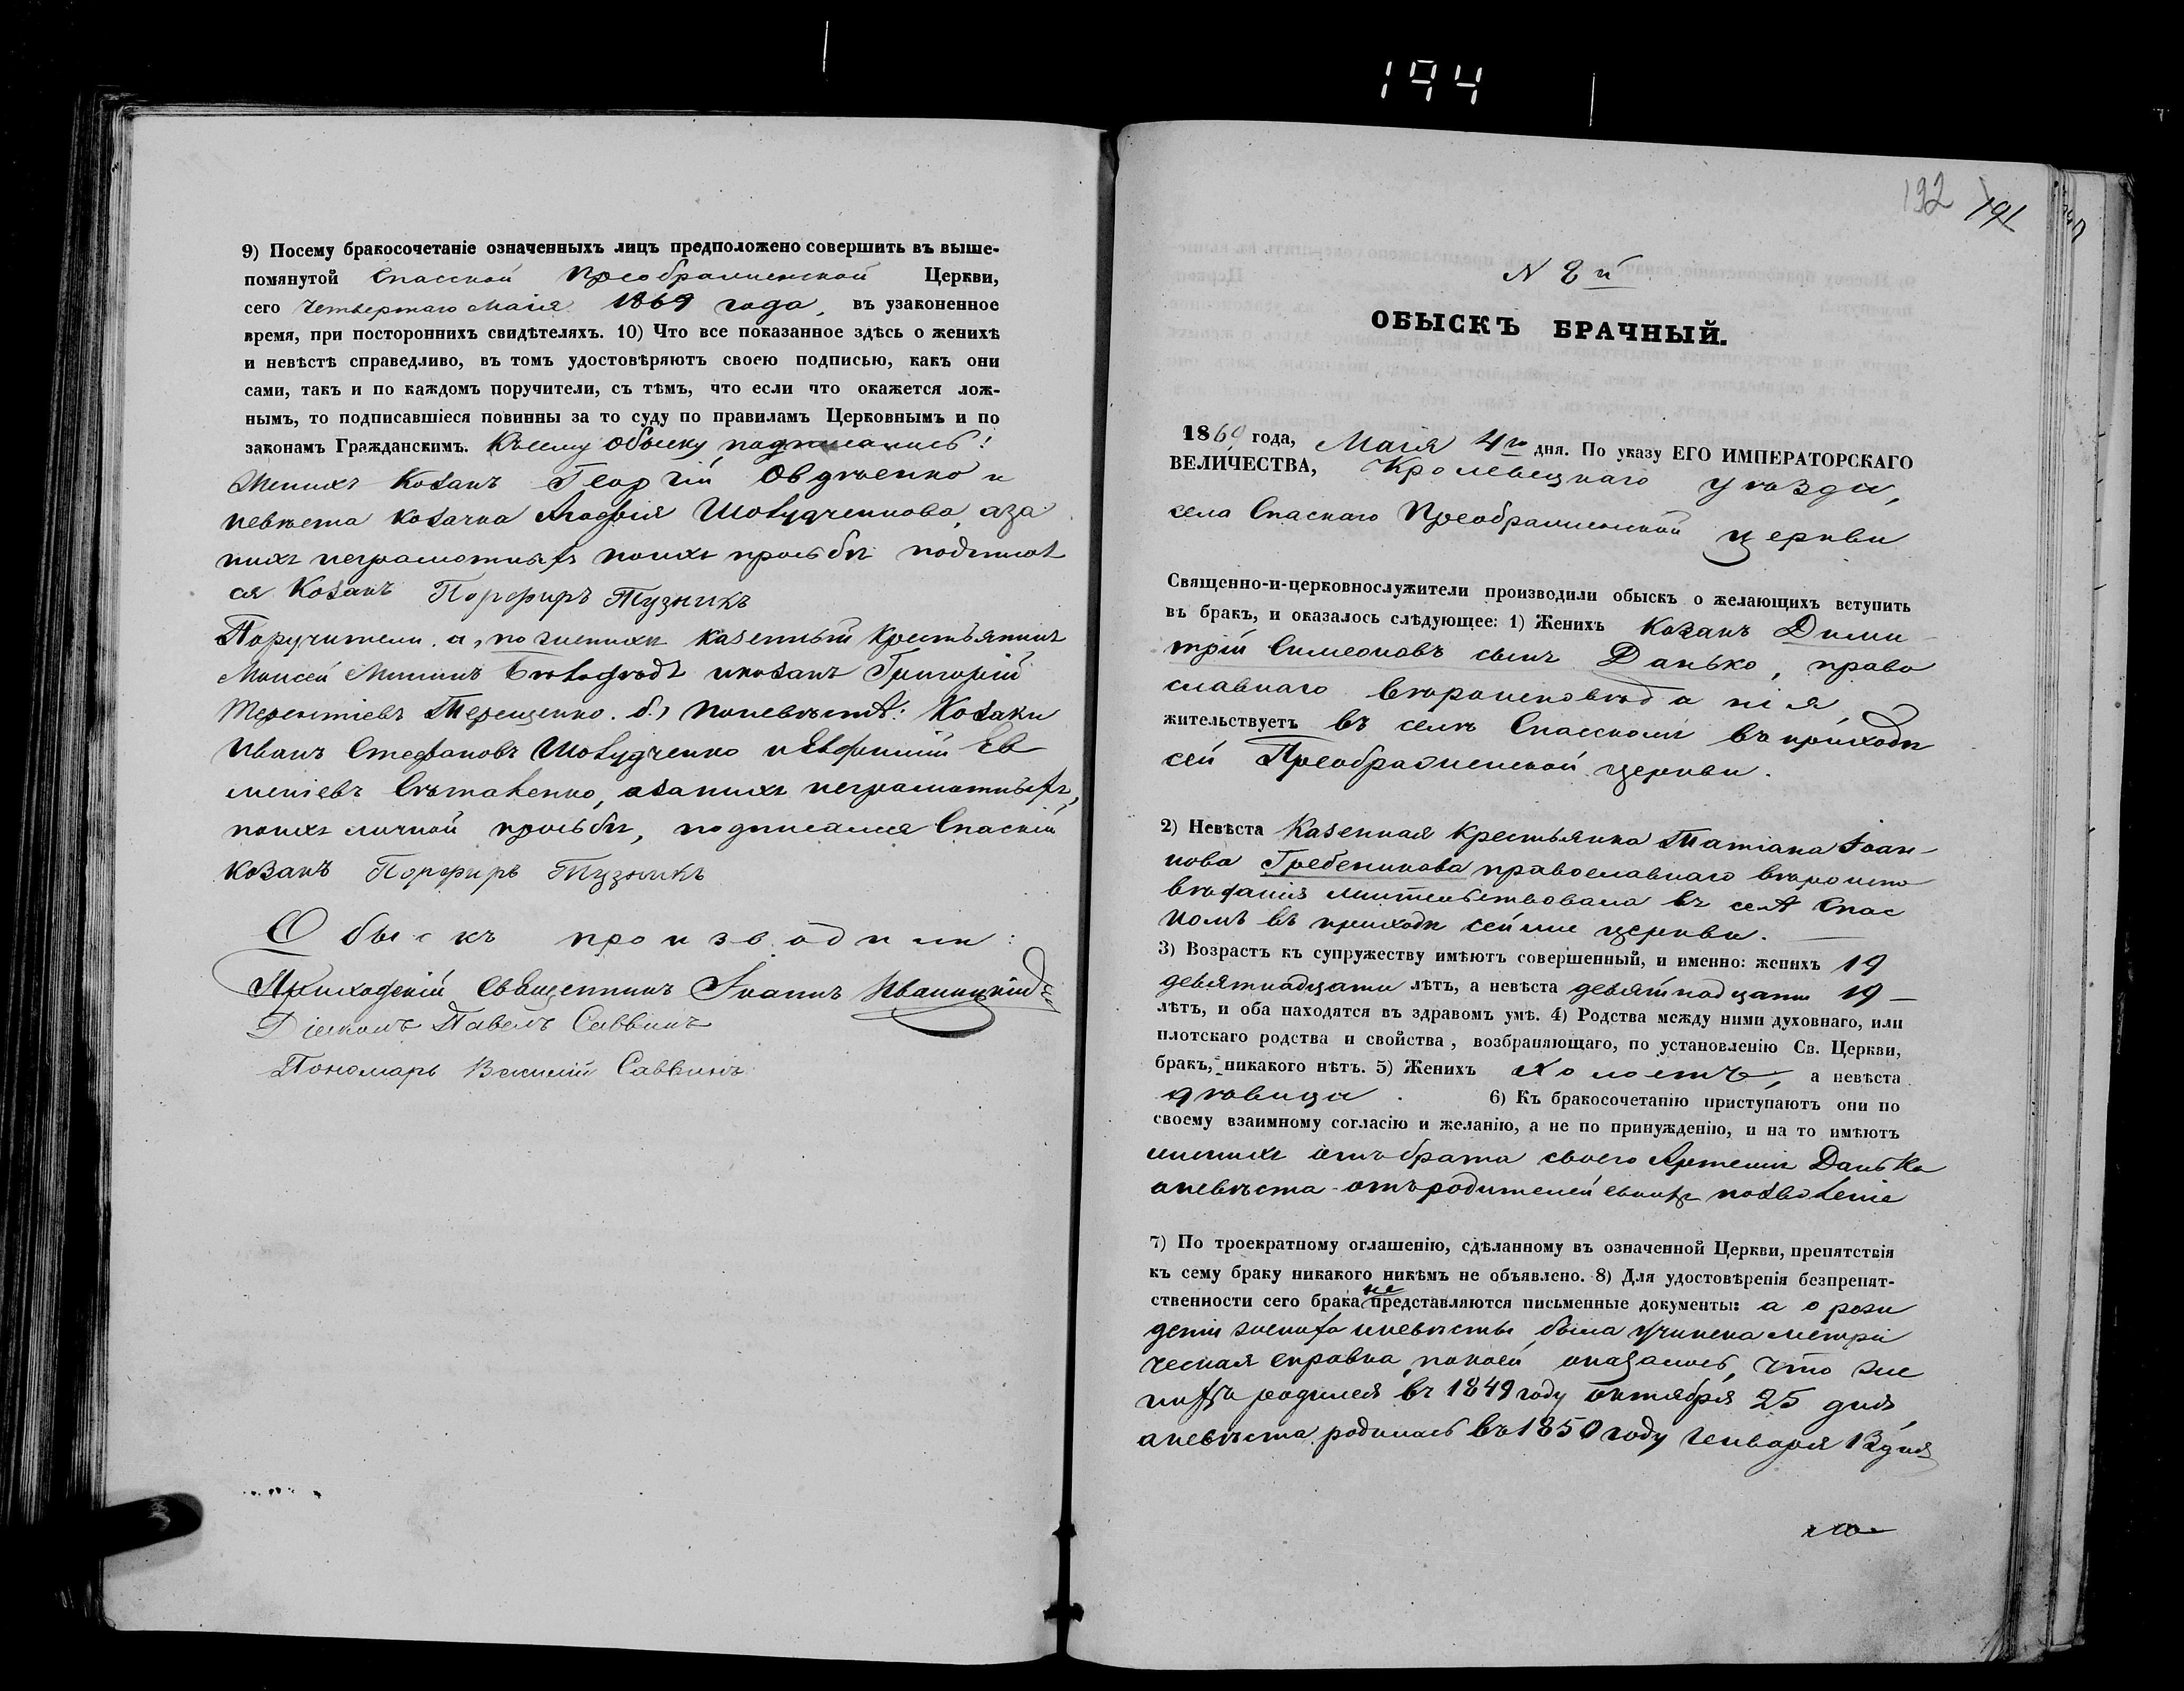 194
9) Посему бракосочетаніе означенныхъ лицъ предположено совершить въ выше-
помянутой Спасской Преображенской Церкви,
сего четвертаго Маія 1869 года, въ узаконенное
время, при постороннихъ свидѣтеляхъ. 10) Что все показанное здѣсь о женихѣ
и невѣстѣ справедливо, въ томъ удостовѣряютъ своею подписью, какъ они
сами, такъ и по каждомъ поручители, съ тѣмъ, что если что окажется лож-
нымъ, то подписавшіеся повинны за то суду по правиламъ Церковнымъ и по
законамъ Гражданскимъ. Ксему обыску подписались:
Женихъ Козакъ Георгій Овдѣенко и
невѣста козачка Агафія Шолудченкова, аза
нихъ неграмотныхъ поихъ прозьбѣ подписал
ся Козакъ Порфиръ Тузникъ
Поручители. а, по женихѣ казенный крестьянинъ
Моисей Мининъ икозакъ Григорій
Терентіевъ Терещенко. б) поневѣстѣ: Козаки
Иванъ Стефановъ Шолудченко и Евфимій Ев
меніевъ азанихъ неграмотныхъ,
поихъ личной прозьбѣ, подписался Спаскій
козакъ Порфиръ Тузникъ
Обыскъ производили:
Приходскій Священникъ Іоаннъ Иваницкій
Діаконъ Павелъ Саввинъ
Пономарь Василій Саввинъ
192 191
N 8й
ОБЫСКЪ БРАЧНЫЙ.
1869 года, Маія 4го дня. По указу ЕГО ИМПЕРАТОРСКАГО
ВЕЛИЧЕСТВА, Кролевецкаго уѣзда,
села Спаскаго Преображенской церкви
Священно-и-церковнослужители производили обыскъ о желающихъ вступить
въ бракъ, и оказалось слѣдующее: 1) Женихъ Козакъ Дими
трій Симеоновъ сынъ Данько, право
славнаго вѣроисповѣданія,
жительствуетъ въ селѣ Спасскомъ въ приходѣ
сей Преображенской церкви.
2) Невѣста Казенная крестьянка Татіана Іоан-
нова Гребеникова православнаго вѣроиспо
вѣданія жительствовала въ селѣ Спас
комъ въ приходѣ сей же церкви.
3) Возрастъ къ супружеству имѣютъ совершенный, и именно: женихъ 19
девятнадцати лѣтъ, а невѣста девятнадцати 19 –
лѣтъ, и оба находятся въ здравомъ умѣ. 4) Родства между ними духовнаго, или
плотскаго родства и свойства, возбраняющаго, по установленію Св. Церкви,
бракъ, никакого нѣтъ. 5) Женихъ холостъ, а невѣста
дѣвица. 6) Къ бракосочетанію приступаютъ они по
своему взаимному согласію и желанію, а не по принужденію, и на то имѣютъ
женихъ отъ брата своего Артемія Данька
аневѣста отъ родителей своихъ позволеніе
7) По троекратному оглашенію, сдѣланному въ означенной Церкви, препятствія
къ сему браку никакого никѣмъ не объявлено. 8) Для удостовѣренія безпрепят-
ственности сего брака не представляются письменные документы: а о рож
деніи жениха иневѣсты была учинена метри
ческая справка, покоей оказалось, что же
нихъ родился въ 1849 году октября 25 дня,
аневѣста родилась въ 1850 году Генваря 12 дня